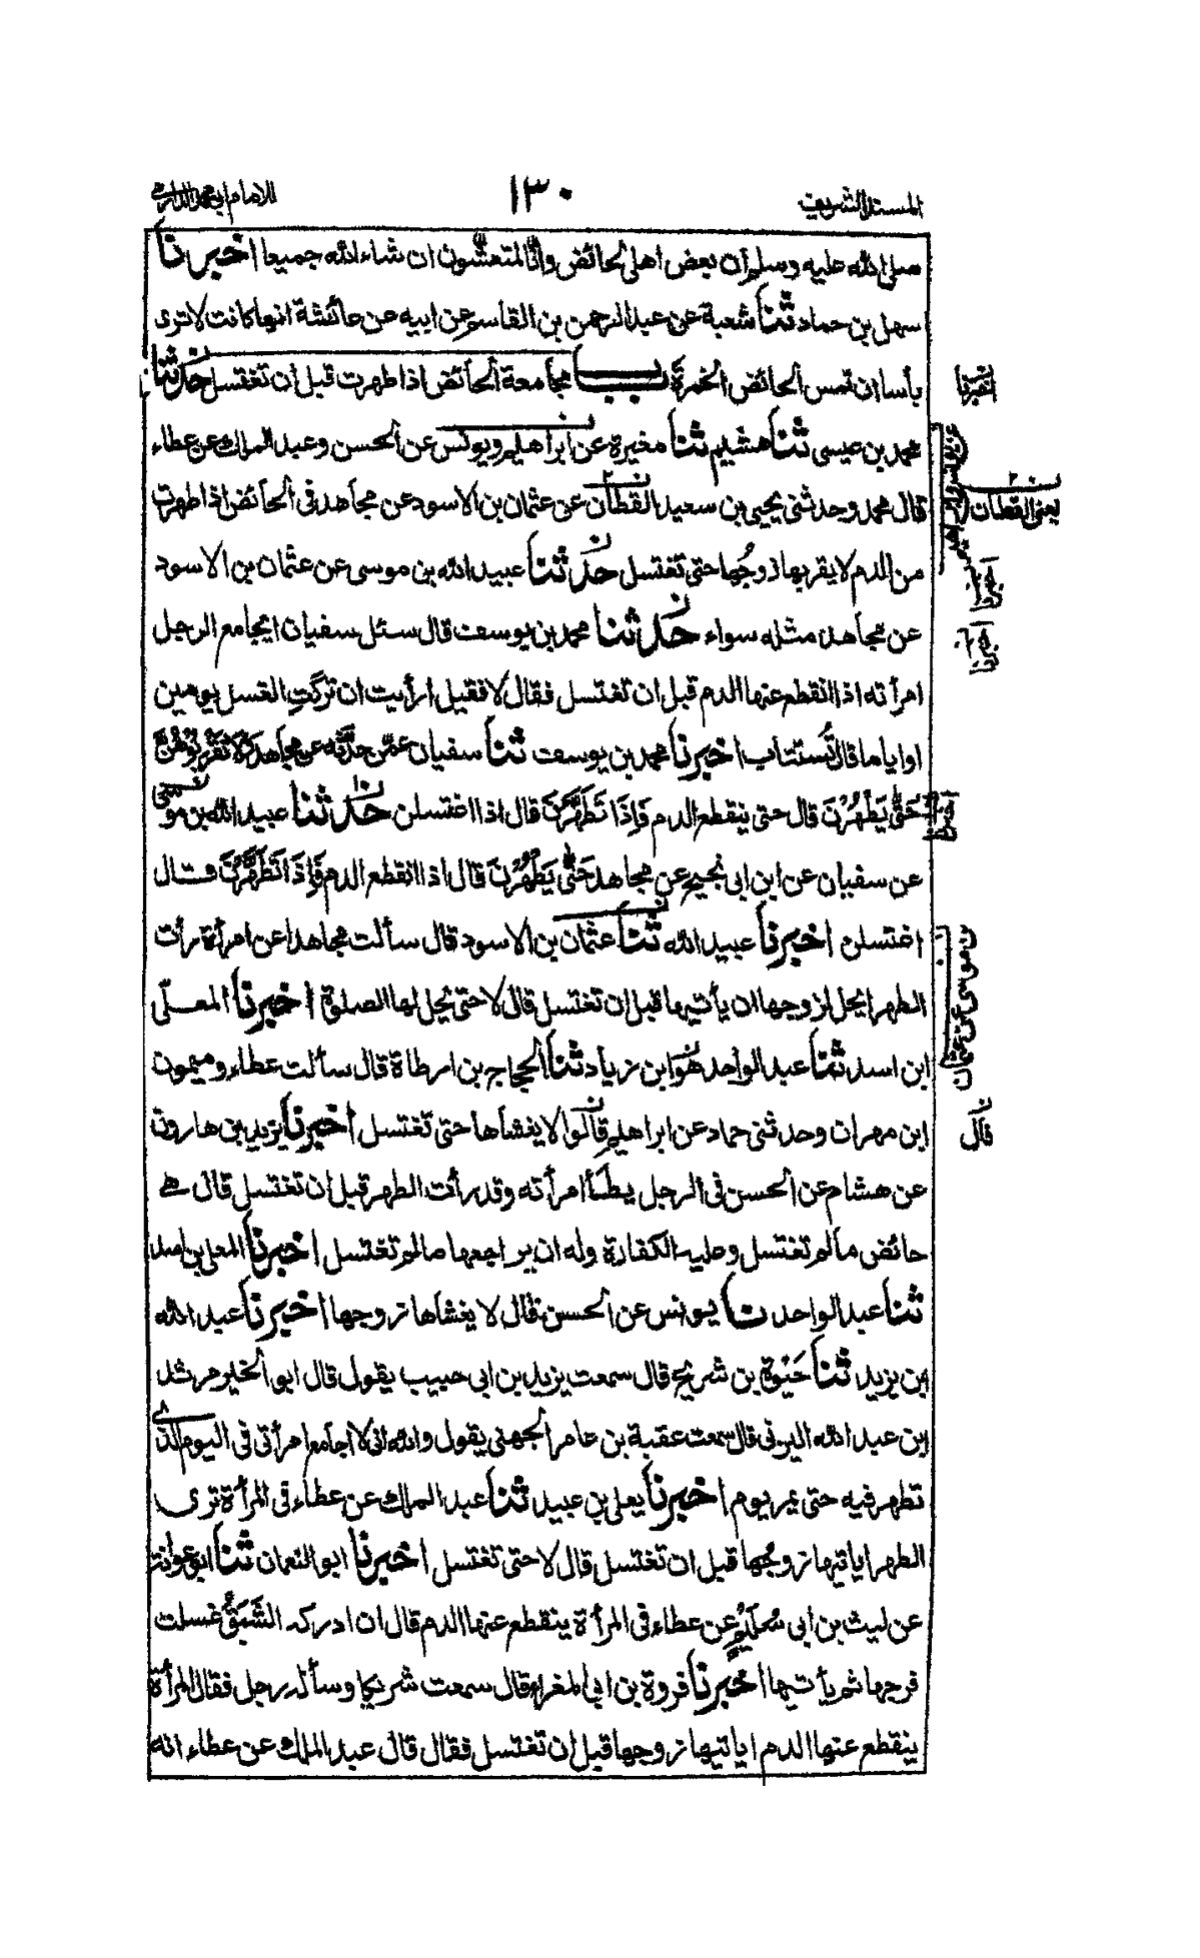 المسند الشريف
١٣٠
للامام ابي محمد الدارمي
صلى الله عليه وسلم ان بعض اهلى لحائض وانا لمتعشون ان شاء الله جميعا اخبرنا
سهل بن حماد ثنا شعبة عن عبد الرحمن بن القاسم عن ابيه عن عائشة انها كانت لا ترى
بأسا ان تمس الحائض الخمرة باب مجامعة الحائض اذا طهرت قبل ان تغتسل حدثنا
اخبرنا
محمد بن عيسى ثنا هشيم ثنا مغيرة عن ابراهيم ويونس عن الحسن وعبد الملك عن عطاء
قال محمد وحدثنى يحيى بن سعيد القطان عن عثمان بن الاسود عن مجاهد فى الحائض اذا طهرت
يعنى القطان
من الدم لا يقربها زوجُها حتى تغتسل حدثنا عبيد الله بن موسى عن عثمان بن الاسود
اخبرنا
عن مجاهد مثله سواء حدثنا محمد بن يوسف قال سئل سفيان ايجامع الرجل
اخبرنا
امرأته اذا انقطع عنها الدم قبل ان تغتسل فقال لا فقيل ارأيت ان تركتِ الغسل يومين
او اياما قال تُستتاب اخبرنا محمد بن يوسف ثنا سفيان عمن حدثه عن مجاهد وَلَا تَقْرَبُوْهُنَّ
حَتّٰى يَطْهُرْنَ قال حتى ينقطع الدم فَاِذَا تَطَهَّرْنَ قال اذا اغتسلن حدثنا عبيد الله بن موسى
اخبرنا
عن سفيان عن ابن ابى نجيح عن مجاهد حَتّٰى يَطْهُرْنَ قال اذا انقطع الدم فَاِذَا تَطَهَّرْنَ قال
اغتسلن اخبرنا عبيد الله ثنا عثمان بن الاسود قال سألت مجاهدا عن امرأة رأت
بن موسى عن عثمان
الطهر ايحل لزوجها ان يأتيها قبل ان تغتسل قال لا حتى يحل لها الصلوة اخبرنا المعلّى
ابن اسد ثنا عبد الواحد هو ابن زياد ثنا الحجاج بن ارطاة قال سألت عطاء وميمون
ابن مهران وحدثنى حماد عن ابراهيم قالوا لا يغشاها حتى تغتسل اخبرنا يزيد بن هارون
قال
عن هشام عن الحسن فى الرجل يطأ امرأته وقد رأت الطهر قبل ان تغتسل قال هى
حائض مالم تغتسل وعليه الكفارة وله ان يراجعها مالم تغتسل اخبرنا المعلى بن اسد
ثنا عبد الواحد ثنا يونس عن الحسن قال لا يغشاها زوجها اخبرنا عبد الله
بن يزيد ثنا حَيْوة بن شريح قال سمعت يزيد بن ابى حبيب يقول قال ابو الخير مرثد
ابن عبد الله اليزنى قال سمعت عقبة بن عامر الجهنى يقول والله انى لا اجامع امرأتى فى اليوم الذى
تطهر فيه حتى يمر يوم اخبرنا يعلى بن عبيد ثنا عبد الملك عن عطاء فى المرأة ترى
الطهر اياتيها زوجُها قبل ان تغتسل قال لا حتى تغتسل اخبرنا ابو النعمان ثنا ابو عوانة
عن ليث بن ابى سُليم عن عطاء فى المرأة ينقطع عنها الدم قال ان ادركه الشَبَقُ غسلت
فرجها ثم يأتيها اخبرنا فروة بن ابى المغراء قال سمعت شريكا وسأله رجل فقال المرأة
ينقطع عنها الدم اياتيها زوجها قبل ان تغتسل فقال قال عبد الملك عن عطاء انه